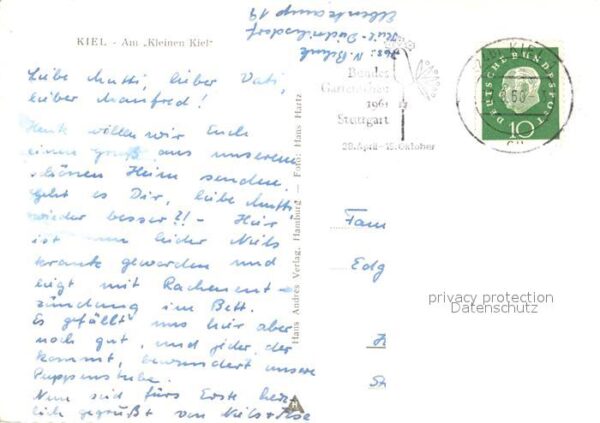 KIEL - Am „Kleinen Kiel"
Liebe Mutti, lieber Vati,
lieber Manfred!
Heute wollen wir Euch
einen Gruß aus unserem
schönen Heim senden.
geht es Dir, liebe Mutti
wieder besser?! - Hier
ist leider Niels
krank geworden und
liegt mit Rachenent-
zündung im Bett.
Es gefällt uns hier aber
noch gut, und jeder, der
kommt, bewundert unsere
Puppenstube.
Nun seid fürs Erste herz-
lich gegrüßt von Niels +
Abs: N.
Kiel-Dietrichsdorf
19
Hans Andres Verlag, Hamburg — Foto: Hans Hartz
Bundes
Gartenschau
1961
Stuttgart
28.April-15.Oktober
KIEL
DEUTSCHE BUNDESPOST
10
Fam
Edg
St
privacy protection
Datenschutz